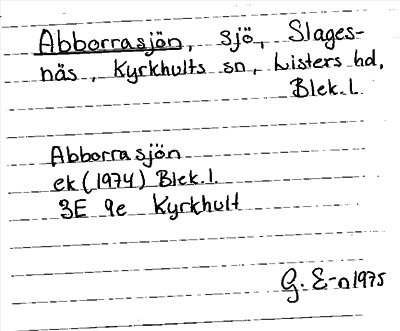 Abborrasjön, sjö, Slages-
näs, Kyrkhults sn, Listers hd,
Blek.l.
Abborrasjön
ek (1974) Blek.l.
3E 9e Kyrkhult
G. E-n 1975